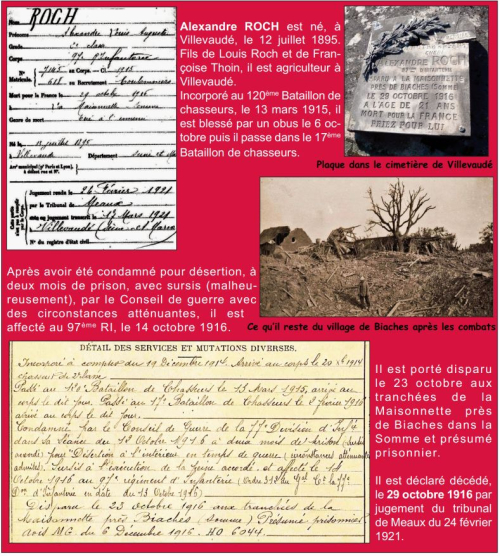 Nom ROCH
Prénoms Alexandre Louis Auguste
Grade 2e classe
Corps 97e Infanterie
Matricule. au Corps. — Cl. 1915
au Recrutement
Mort pour la France le 29 octobre 1916
à la Maisonnette Somme
Genre de mort
Né le 12 juillet 1895
à Villevaudé Département Seine et
Arrt municipal (pr Paris et Lyon),
à défaut rue et N°.
Jugement rendu le 24 Février 1921
par le Tribunal de Meaux
acte ou jugement transcrit le 13 Mars 1921
à Villevaudé (Seine et Marne)
N° du registre d'état civil
Alexandre ROCH est né, à
Villevaudé, le 12 juillet 1895.
Fils de Louis Roch et de Fran-
çoise Thoin, il est agriculteur à
Villevaudé.
Incorporé au 120ème Bataillon de
chasseurs, le 13 mars 1915, il
est blessé par un obus le 6 oc-
tobre puis il passe dans le 17ème
Bataillon de chasseurs.
ALEXANDRE ROCH
A LA MAISONNETTE
PRÈS DE BIACHES (SOMME)
LE 29 OCTOBRE 1916
A L'AGE DE 21 ANS
MORT POUR LA FRANCE
PRIEZ POUR LUI
Plaque dans le cimetière de Villevaudé
Après avoir été condamné pour désertion, à
deux mois de prison, avec sursis (malheu-
reusement), par le Conseil de guerre avec
des circonstances atténuantes, il est
affecté au 97ème RI, le 14 octobre 1916.
Ce qu'il reste du village de Biaches après les combats
DÉTAIL DES SERVICES ET MUTATIONS DIVERSES.
Incorporé à compter du 19 Décembre 1914. Arrivé au corps le 20 1914
chasseur de 2e classe.
Passé au Bataillon de Chasseurs le 13 Mars 1915, arrivé au
corps le dit jour. Passé au 17e Bataillon de Chasseurs le 2 février 1916
arrivé au corps le dit jour.
Condamné par le Conseil de Guerre de la 77e Division d'Inf
dans sa séance du Octobre 1916 à deux mois de prison (sursis
accordé) pour Désertion à l'intérieur en temps de guerre (circonstances atténuantes
admises). Sursis à l'exécution de la peine accordé et affecté le 14
Octobre 1916 au 97e régiment d'Infanterie (Ordre
D'Infanterie en date du 13 Octobre 1916)
Disparu le 23 Octobre 1916 aux tranchées de la
Maisonnette près Biaches (Somme) Présumé prisonnier
avis M.G. du 6 Décembre 1916. HO 6044.
Il est porté disparu
le 23 octobre aux
tranchées de la
Maisonnette près
de Biaches dans la
Somme et présumé
prisonnier.
Il est déclaré décédé,
le 29 octobre 1916 par
jugement du tribunal
de Meaux du 24 février
1921.